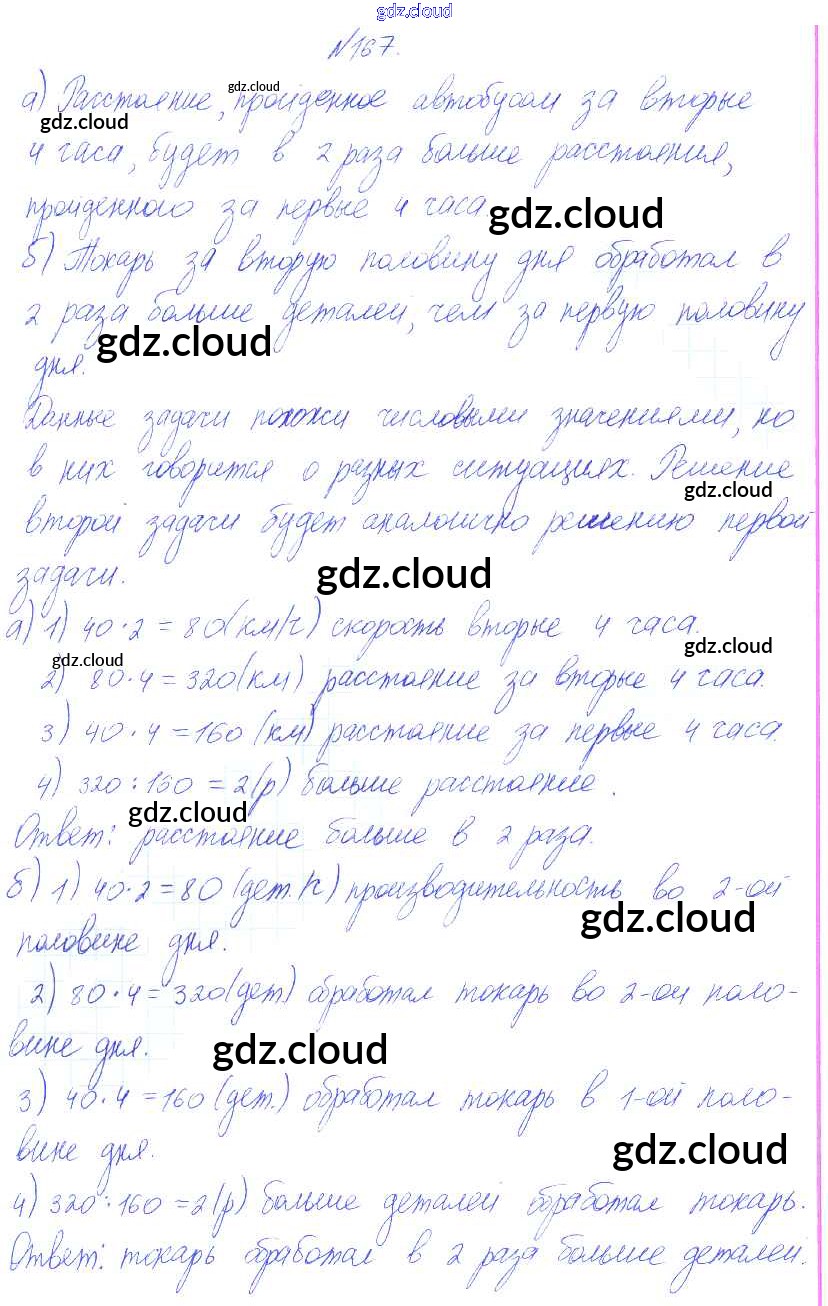 gdz.cloud
№167.
gdz.cloud
а) Расстояние, пройденное автобусом за вторые
gdz.cloud
4 часа, будет в 2 раза больше расстояния,
пройденного за первые 4 часа.
gdz.cloud
б) Токарь за вторую половину дня обработал в
2 раза больше деталей, чем за первую половину
gdz.cloud
дня.
Данные задачи похожи числовыми значениями, но
в них говорится о разных ситуациях. Решение
gdz.cloud
второй задачи будет аналогично решению первой
задачи.
gdz.cloud
а) 1) 40·2=80(км/ч) скорость вторые 4 часа.
gdz.cloud
gdz.cloud
2) 80·4=320(км) расстояние за вторые 4 часа.
3) 40·4=160(км) расстояние за первые 4 часа.
4) 320:160=2(р) больше расстояние.
gdz.cloud
Ответ: расстояние больше в 2 раза.
б) 1) 40·2=80(дет./ч) производительность во 2-ой
gdz.cloud
половине дня.
2) 80·4=320(дет) обработал токарь во 2-ой поло-
вине дня.
gdz.cloud
3) 40·4=160(дет.) обработал токарь в 1-ой поло-
вине дня.
gdz.cloud
4) 320:160=2(р) больше деталей обработал токарь.
Ответ: токарь обработал в 2 раза больше деталей.